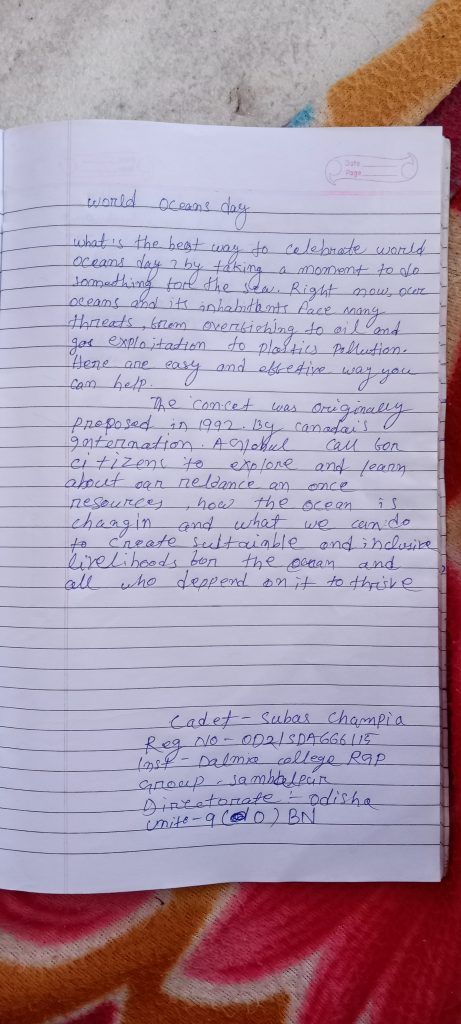 Date
Page
world oceans day
what's the best way to celebrate world
oceans day ? by taking a moment to do
something for the sea. Right now, our
oceans and its inhabitants face many
threats, from overfishing to oil and
gas exploitation to plastics pollution.
Here are easy and effetive way you
can help.
The concet was originally
proposed in 1992. By canadais
Internation. A global call for
citizens to explore and learn
about oar relance an once
resources, how the ocean is
changin and what we can do
to create sultaiable and inclusive
livelihoods for the ocean and
all who deppend on it to thrive
Cadet - Subas Champia
Reg NO - OD21SDA666115
Inst - Dalmia college RGP
Group - Sambalpur
Directorate :- odisha
unite - 9 (O) BN